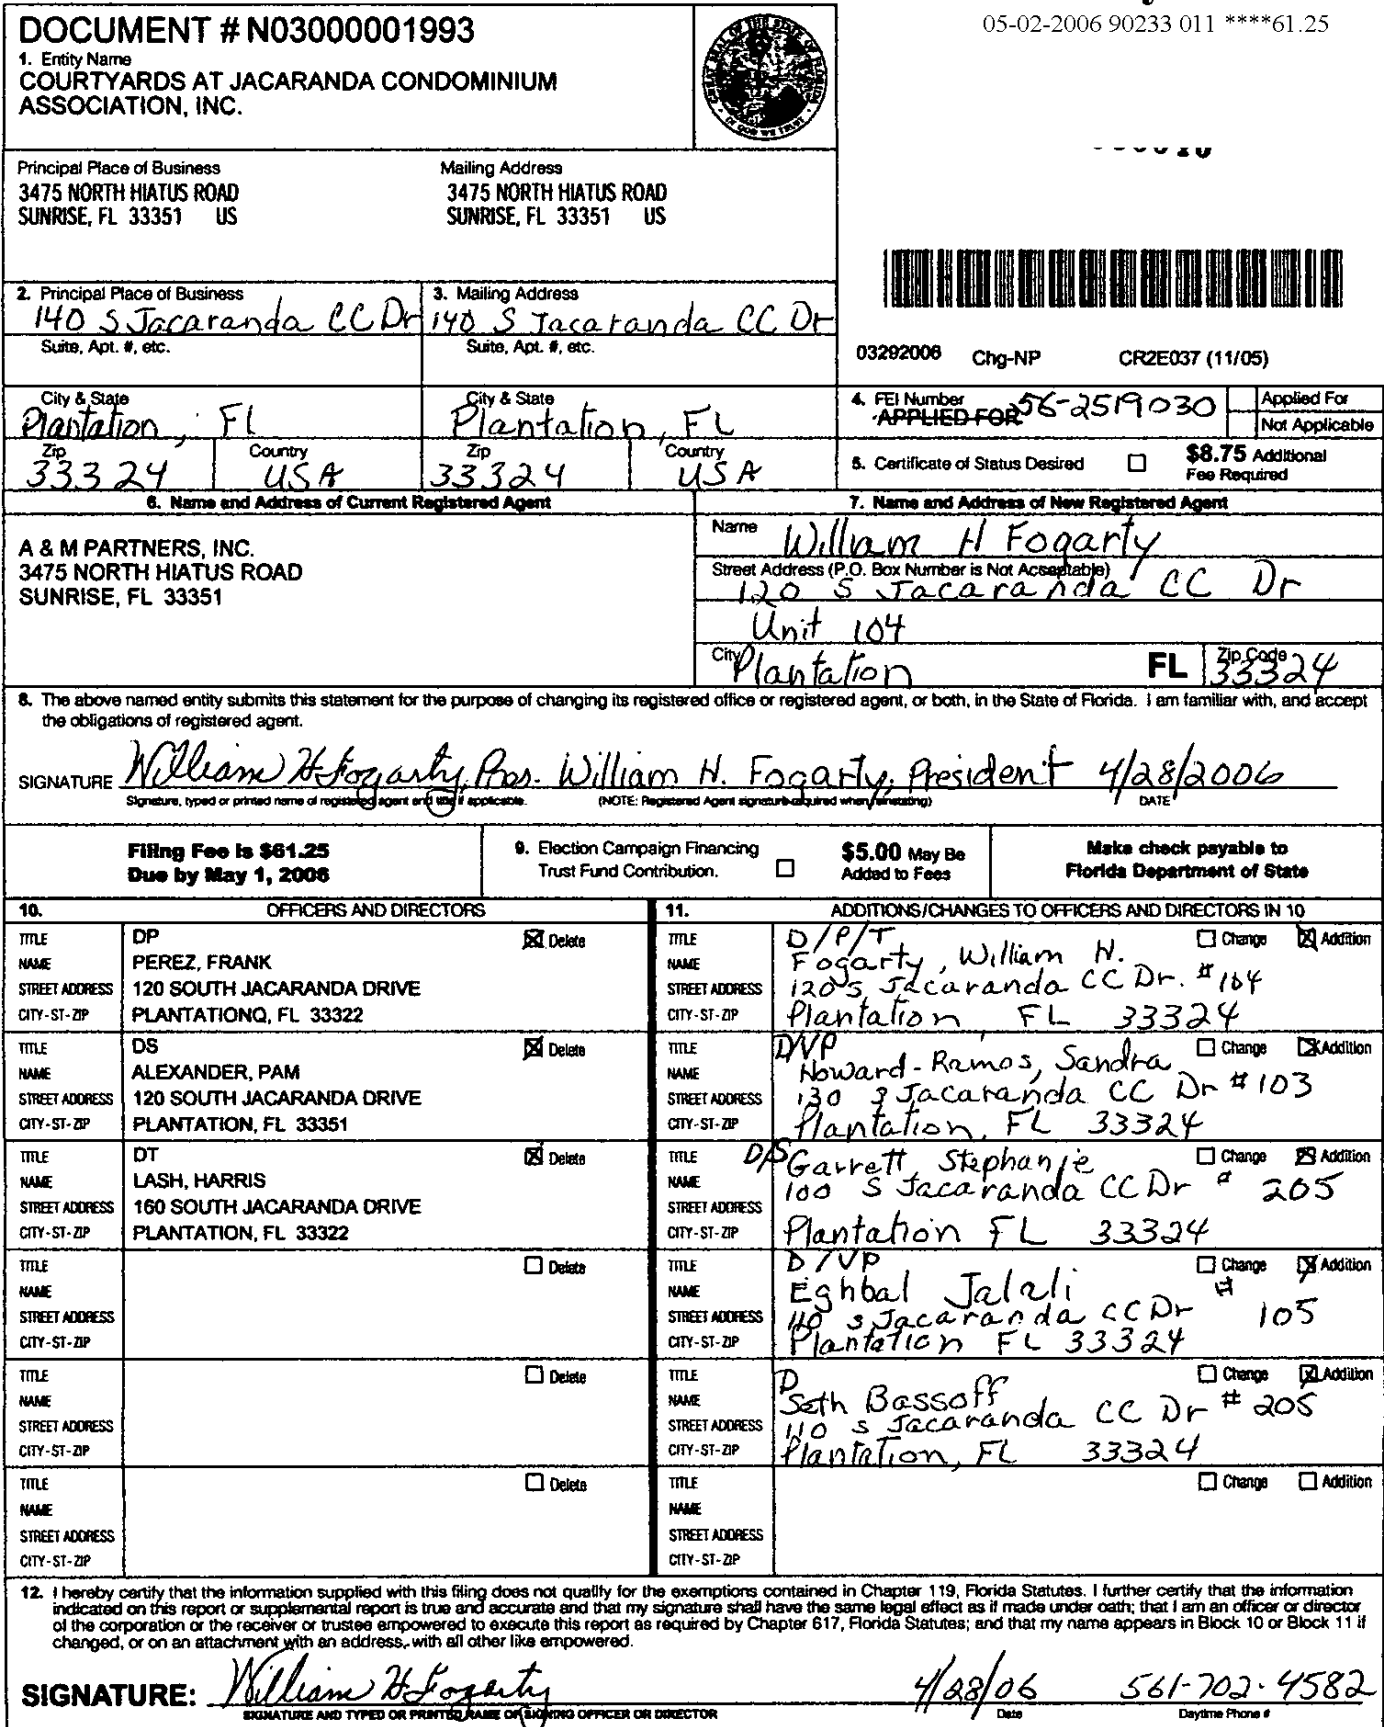 DOCUMENT # N03000001993
1. Entity Name
COURTYARDS AT JACARANDA CONDOMINIUM
ASSOCIATION, INC.
GREAT SEAL OF THE STATE OF FLORIDA
IN GOD WE TRUST
05-02-2006 90233 011 ****61.25
Principal Place of Business
3475 NORTH HIATUS ROAD
SUNRISE, FL 33351 US
Mailing Address
3475 NORTH HIATUS ROAD
SUNRISE, FL 33351 US
2. Principal Place of Business
140 S Jacaranda CC Dr
Suite, Apt. #, etc.
3. Mailing Address
140 S Jacaranda CC Dr
Suite, Apt. #, etc.
03292006 Chg-NP CR2E037 (11/05)
City & State
Plantation, FL
City & State
Plantation, FL
Zip
33324
Country
USA
Zip
33324
Country
USA
4. FEI Number
APPLIED FOR 56-2519030
Applied For
Not Applicable
5. Certificate of Status Desired
$8.75 Additional
Fee Required
6. Name and Address of Current Registered Agent
A & M PARTNERS, INC.
3475 NORTH HIATUS ROAD
SUNRISE, FL 33351
7. Name and Address of New Registered Agent
Name William H Fogarty
Street Address (P.O. Box Number is Not Acceptable)
120 S Jacaranda CC Dr
Unit 104
City Plantation FL Zip Code 33324
8. The above named entity submits this statement for the purpose of changing its registered office or registered agent, or both, in the State of Florida. I am familiar with, and accept
the obligations of registered agent.
SIGNATURE William H Fogarty, Pres. William H. Fogarty, President 4/28/2006
Signature, typed or printed name of registered agent and title if applicable. (NOTE: Registered Agent signature required when reinstating) DATE
Filing Fee is $61.25
Due by May 1, 2006
9. Election Campaign Financing
Trust Fund Contribution.
$5.00 May Be
Added to Fees
Make check payable to
Florida Department of State
10. OFFICERS AND DIRECTORS
TITLE DP Delete
NAME PEREZ, FRANK
STREET ADDRESS 120 SOUTH JACARANDA DRIVE
CITY-ST-ZIP PLANTATIONQ, FL 33322
TITLE DS Delete
NAME ALEXANDER, PAM
STREET ADDRESS 120 SOUTH JACARANDA DRIVE
CITY-ST-ZIP PLANTATION, FL 33351
TITLE DT Delete
NAME LASH, HARRIS
STREET ADDRESS 160 SOUTH JACARANDA DRIVE
CITY-ST-ZIP PLANTATION, FL 33322
TITLE Delete
NAME
STREET ADDRESS
CITY-ST-ZIP
TITLE Delete
NAME
STREET ADDRESS
CITY-ST-ZIP
TITLE Delete
NAME
STREET ADDRESS
CITY-ST-ZIP
11. ADDITIONS/CHANGES TO OFFICERS AND DIRECTORS IN 10
TITLE D/P/T Change Addition
NAME Fogarty, William H.
STREET ADDRESS 120 S Jacaranda CC Dr. #104
CITY-ST-ZIP Plantation FL 33324
TITLE D/VP Change Addition
NAME Howard-Ramos, Sandra
STREET ADDRESS 130 S Jacaranda CC Dr #103
CITY-ST-ZIP Plantation, FL 33324
TITLE D/S Garrett, Stephanie Change Addition
NAME
STREET ADDRESS 100 S Jacaranda CC Dr # 205
CITY-ST-ZIP Plantation FL 33324
TITLE D/VP Change Addition
NAME Eghbal Jalali
STREET ADDRESS 110 S Jacaranda CC Dr # 105
CITY-ST-ZIP Plantation FL 33324
TITLE D Change Addition
NAME Seth Bassoff
STREET ADDRESS 110 S Jacaranda CC Dr # 205
CITY-ST-ZIP Plantation, FL 33324
TITLE Change Addition
NAME
STREET ADDRESS
CITY-ST-ZIP
12. I hereby certify that the information supplied with this filing does not qualify for the exemptions contained in Chapter 119, Florida Statutes. I further certify that the information
indicated on this report or supplemental report is true and accurate and that my signature shall have the same legal effect as if made under oath; that I am an officer or director
of the corporation or the receiver or trustee empowered to execute this report as required by Chapter 617, Florida Statutes; and that my name appears in Block 10 or Block 11 if
changed, or on an attachment with an address, with all other like empowered.
SIGNATURE: William H Fogarty 4/28/06 561-702-4582
SIGNATURE AND TYPED OR PRINTED NAME OF SIGNING OFFICER OR DIRECTOR Date Daytime Phone #